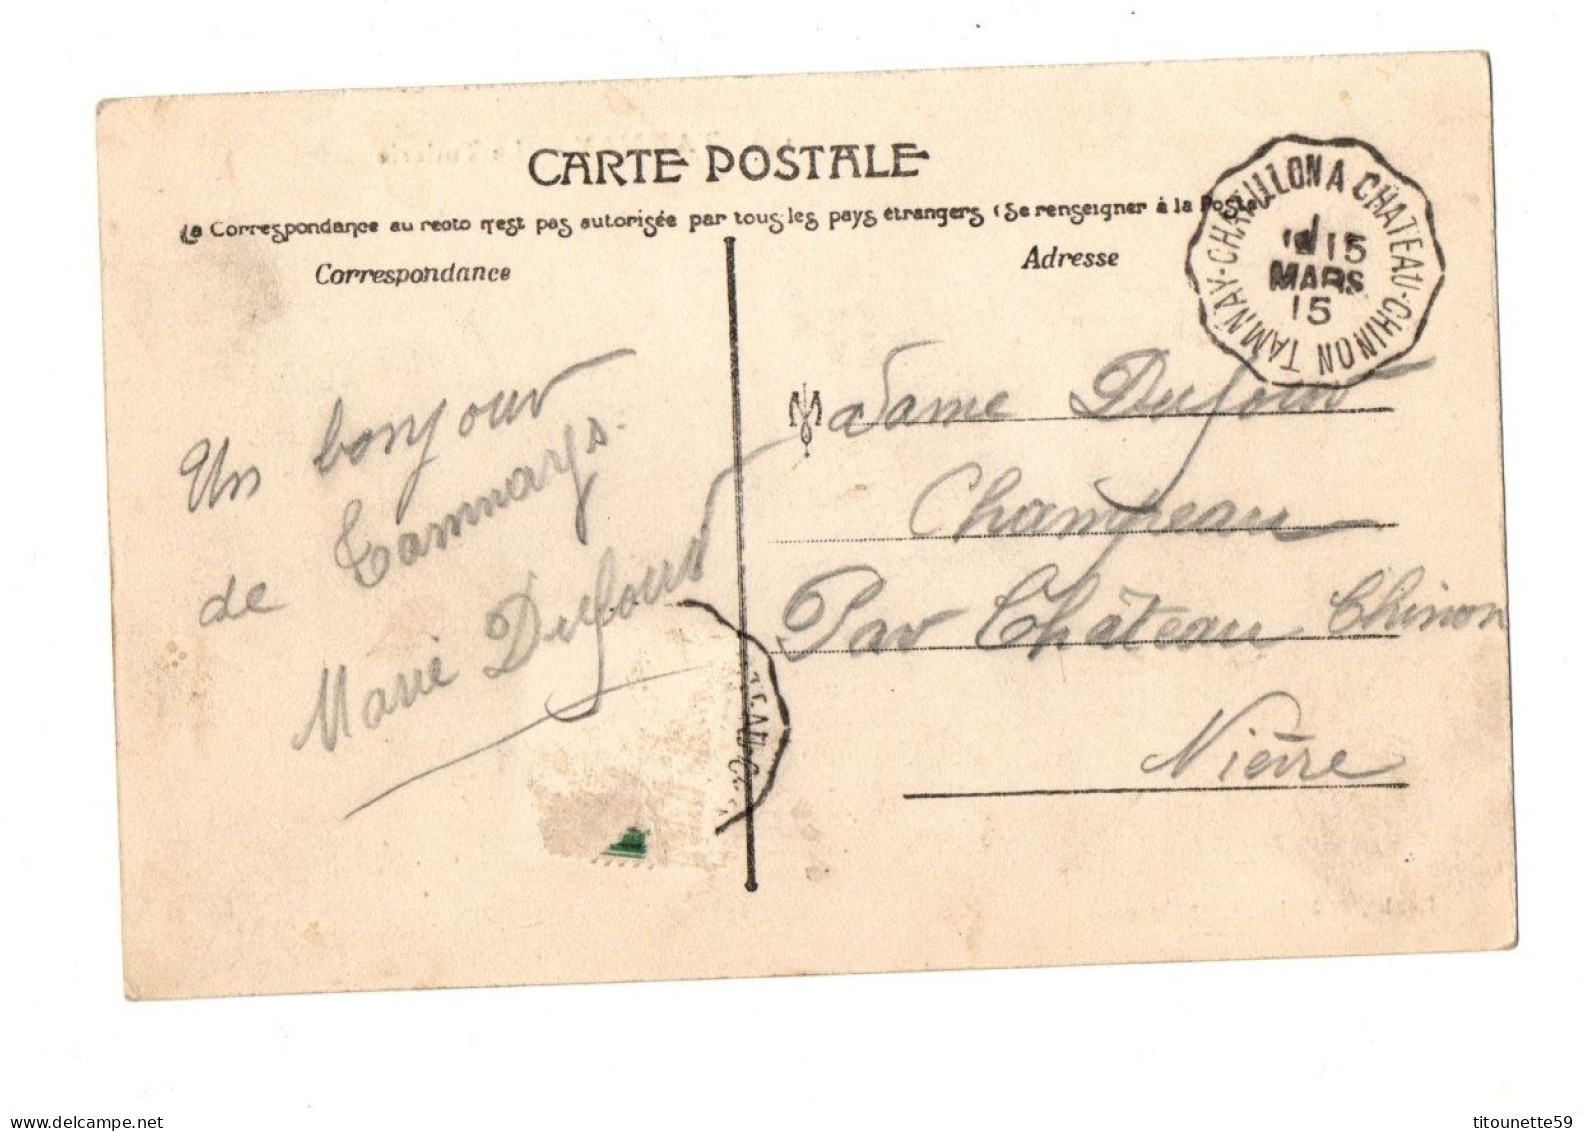 CARTE POSTALE
La Correspondance au recto n'est pas autorisée par tous les pays étrangers (Se renseigner à la Poste)
Correspondance
Adresse
TAMNAY-CHATILLON A CHATEAU-CHINON
15
MARS
15
Un bonjour
de Tamnays.
Marie Dufour
Madame Dufour
Champeau
Par Château Chinon
Nièvre
delcampe.net
titounette59